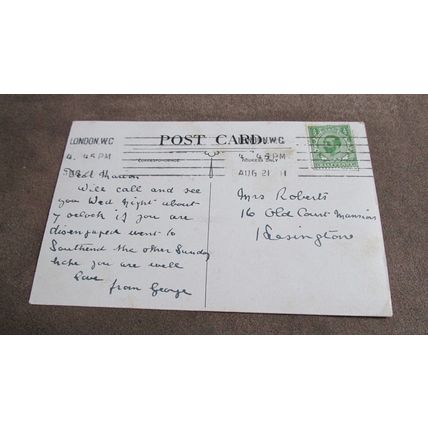 LONDON.W.C
POST CARD.
LONDON.W.C
4. 45 PM
CORRESPONDENCE
ADDRESS ONLY
4. 45 PM
AUG 21 11
Will call and see
you Wed Night about
7 oclock if you are
disengaged went to
Southend the other Sunday
hope you are well
Love
from George
Mrs Roberts
16 Old Court Mansions
Kensington